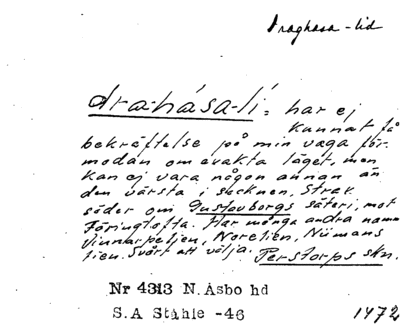 Draghasa-lid
dra-hása-lí = har ej
kunnat få
bekräftelse på min vaga för-
modan om exakta läget, men
kan ej vara någon annan än
den värsta i socknen, strax
söder om Gustavborgs säteri, mot
Föringtofta. Har många andra namn
Vinnarpeljen, Noretien, Nümans
lien. Svårt att välja. Perstorps skn.
Nr 4313 N.Åsbo hd
S.A Ståhle -46
1472